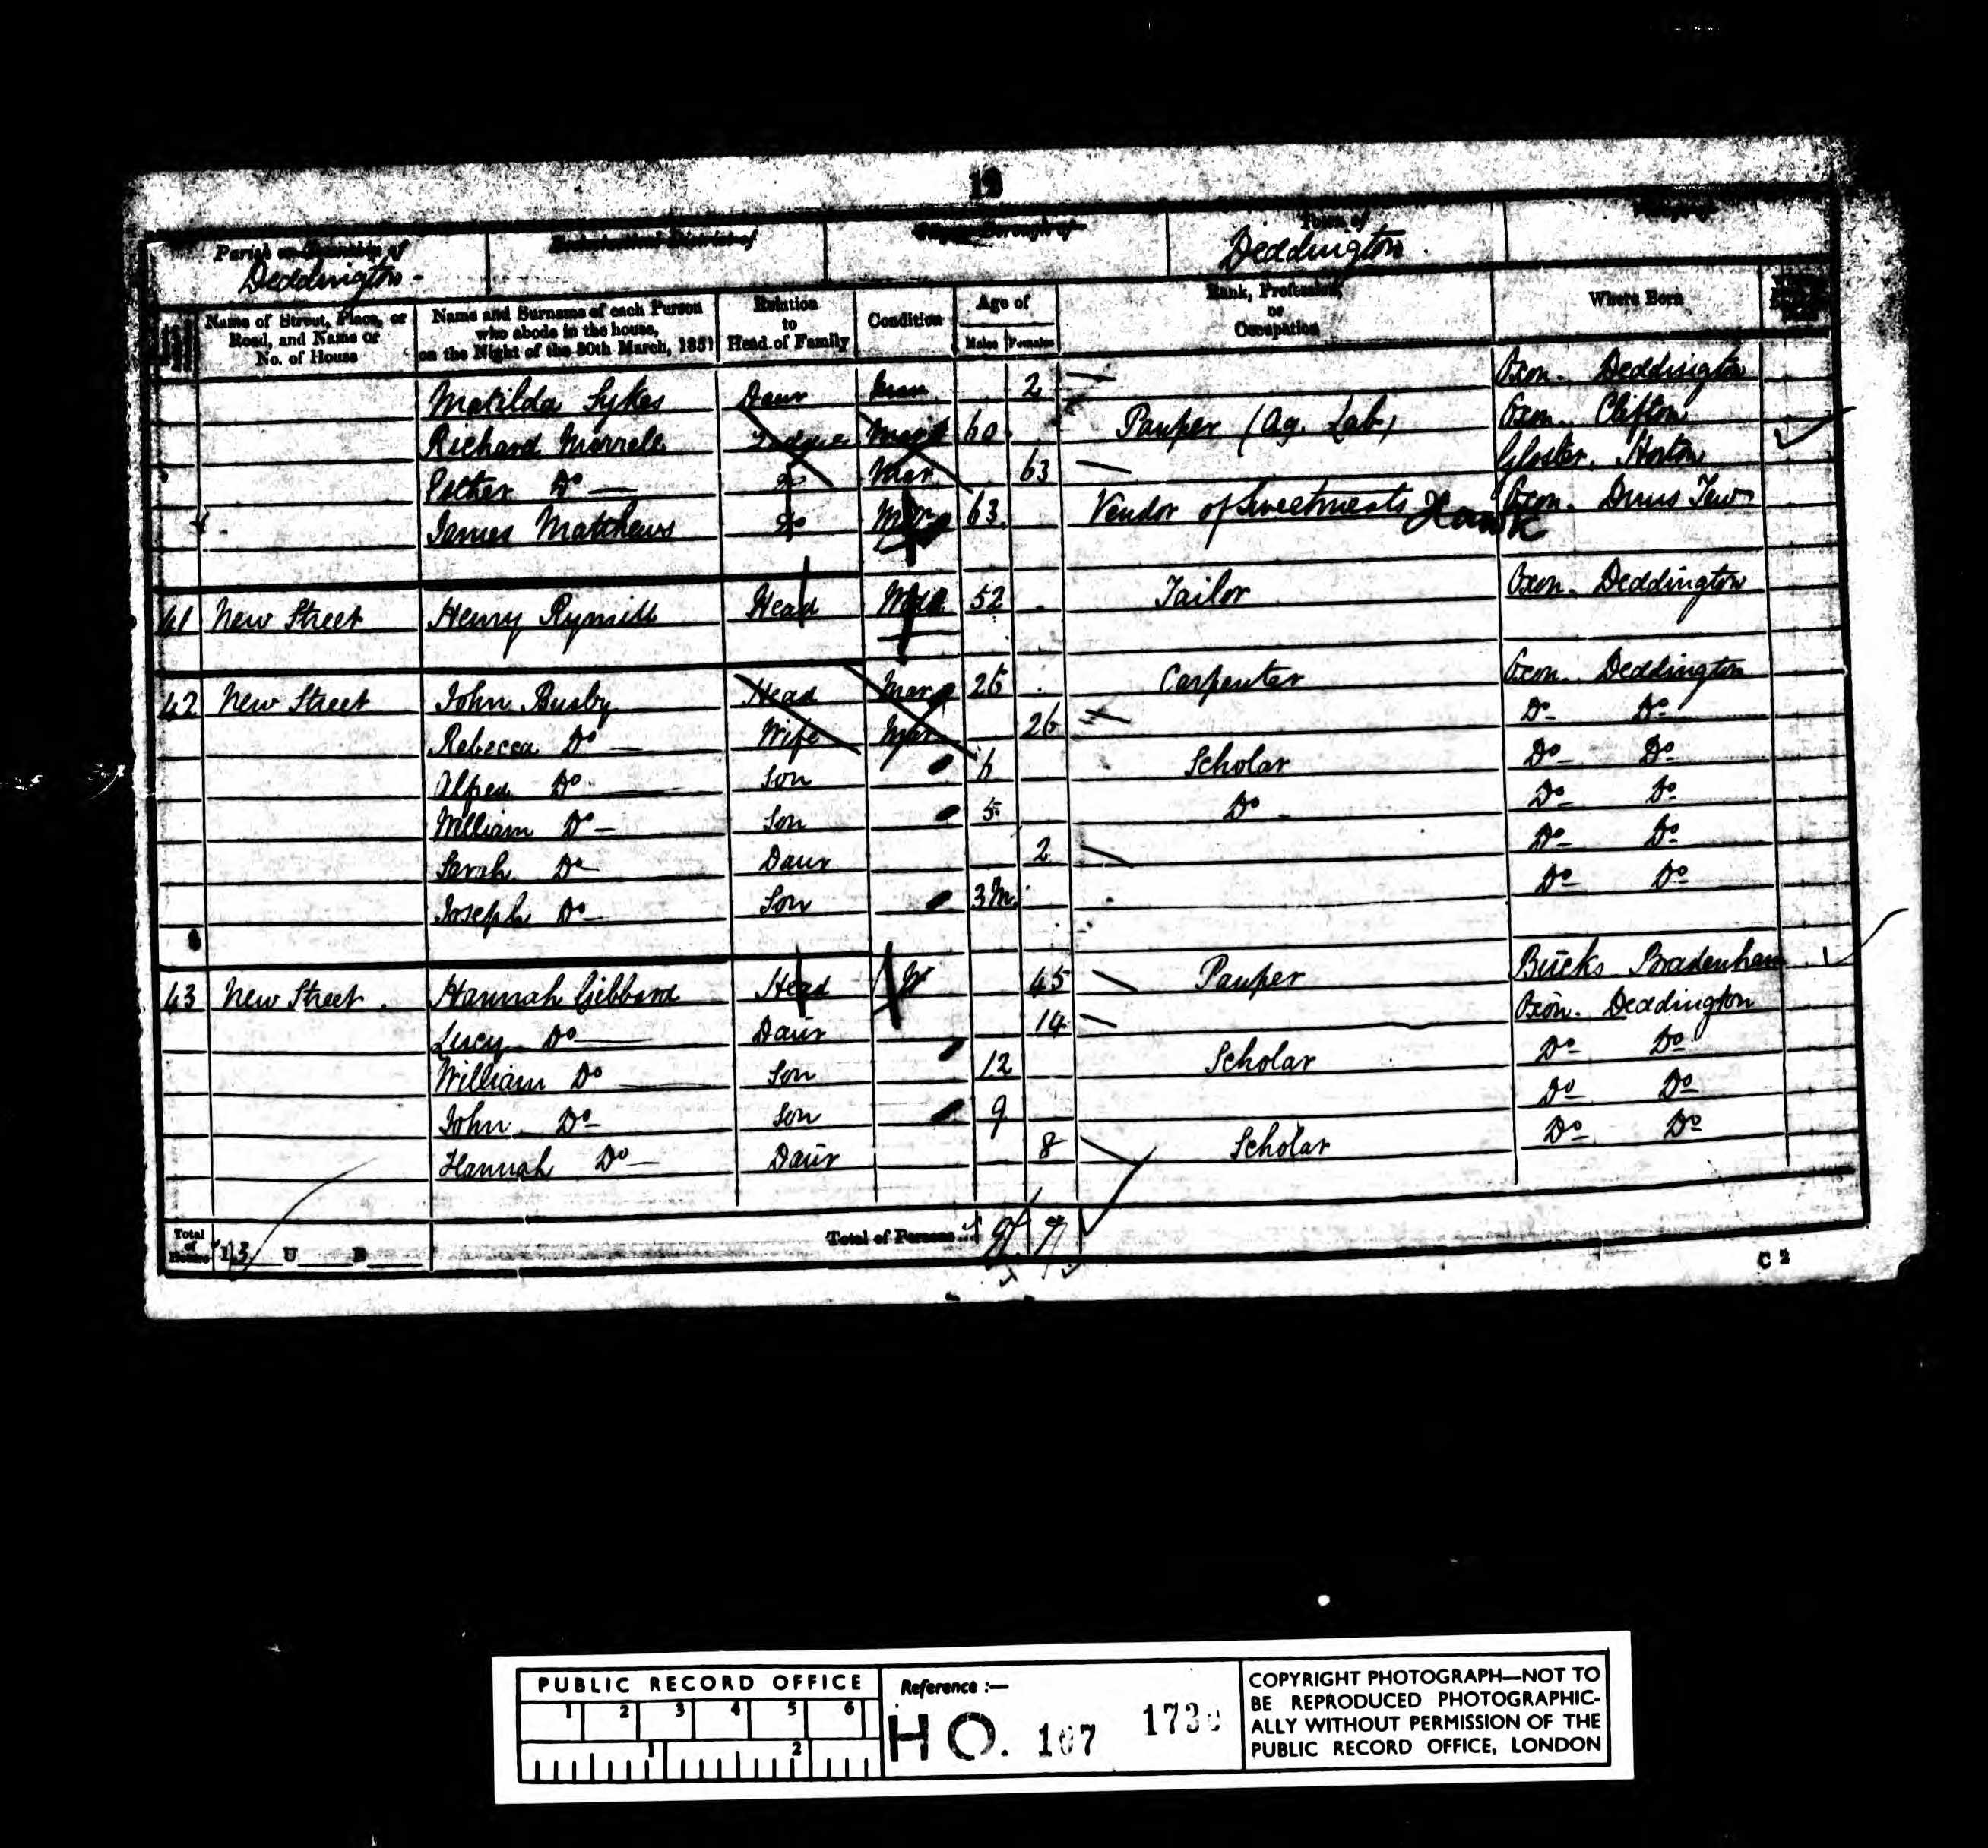 19
Parish or Township of
Ecclesiastical District of
City or Borough of
Town of
Village of
Deddington
Deddington
Name of Street, Place, or Road, and Name or No. of House
Name and Surname of each Person who abode in the house, on the Night of the 30th March, 1851
Relation to Head of Family
Condition
Age of
Males Females
Rank, Profession, or Occupation
Where Born
Matilda Sykes Daur 2 Oxon. Deddington
Richard Morrell Lodger Mar 60 Pauper (Ag. Lab) Oxon. Clifton
Esther Do Do Mar 63 Gloster. Horton
James Matthews Do 63 Vendor of Sweetmeats Hawk Oxon. Duns Tew
41 New Street Henry Rymill Head 52 Tailor Oxon. Deddington
42 New Street John Busby Head Mar 26 Carpenter Oxon. Deddington
Rebecca Do Wife Mar 26 Do Do
Alfred Do Son 6 Scholar Do Do
William Do Son 5 Do Do Do
Sarah Do Daur 2 Do Do
Joseph Do Son 3m. Do Do
43 New Street. Hannah Gibbard Head W 45 Pauper Bucks Bradenham
Lucy Do Daur 14 Oxon. Deddington
William Do Son 12 Scholar Do Do
John Do Son 9 Do Do
Hannah Do Daur 8 Scholar Do Do
Total of Houses I 3 U B Total of Persons 9 7
C 2
PUBLIC RECORD OFFICE
1 2 3 4 5 6
1 2
Reference :—
HO. 107 173
COPYRIGHT PHOTOGRAPH—NOT TO
BE REPRODUCED PHOTOGRAPHIC-
ALLY WITHOUT PERMISSION OF THE
PUBLIC RECORD OFFICE, LONDON